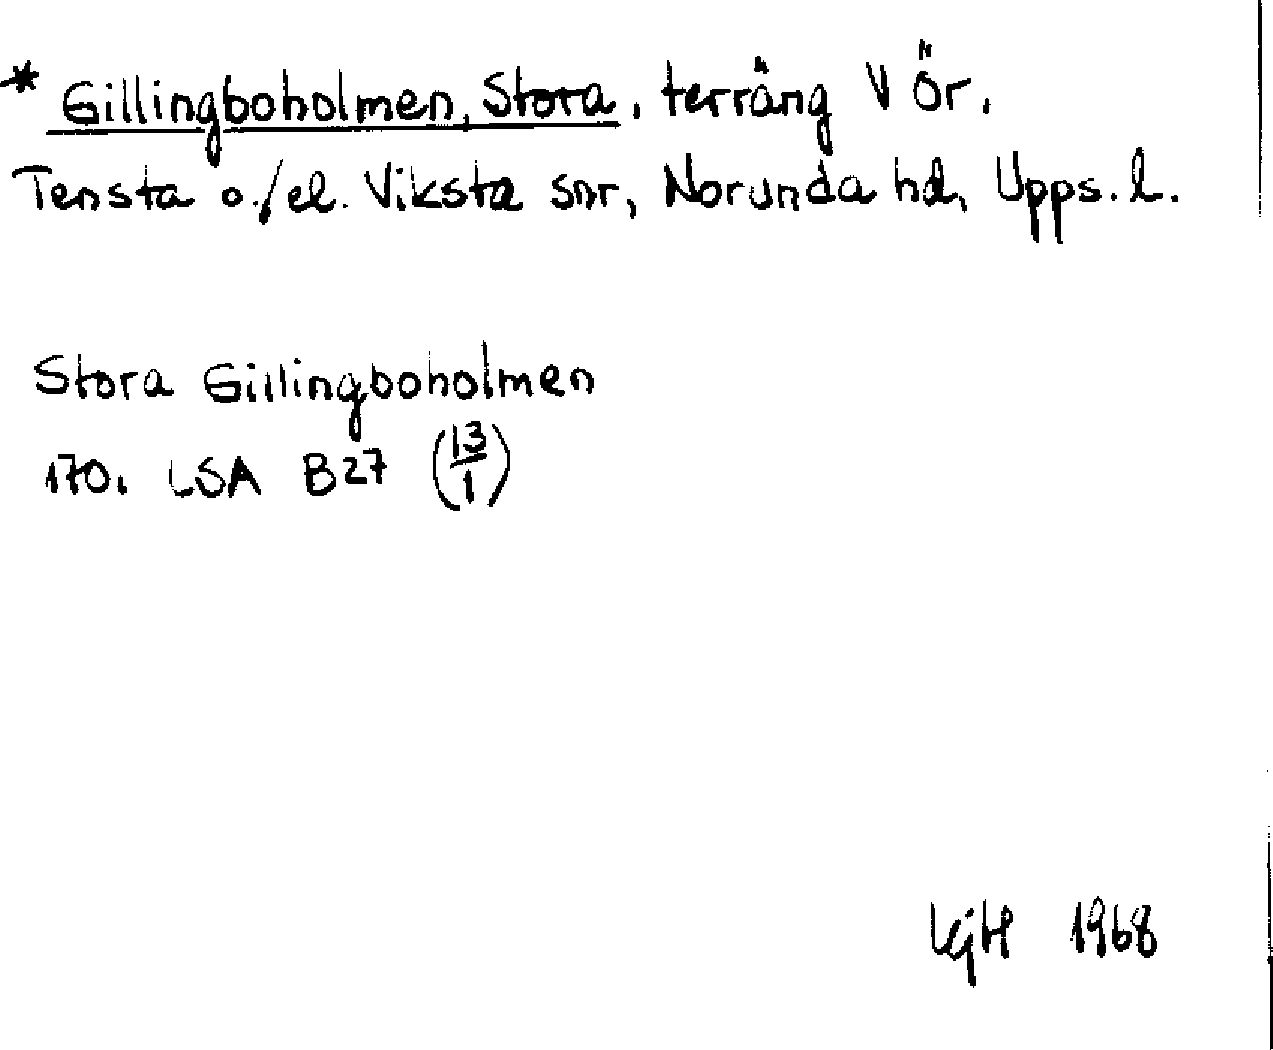 * Gillingboholmen, Stora, terräng V Ör.
Tensta o./el. Viksta snr, Norunda hd, Upps. l.
Stora Gillingboholmen
170. LSA B27 (13/1)
1968